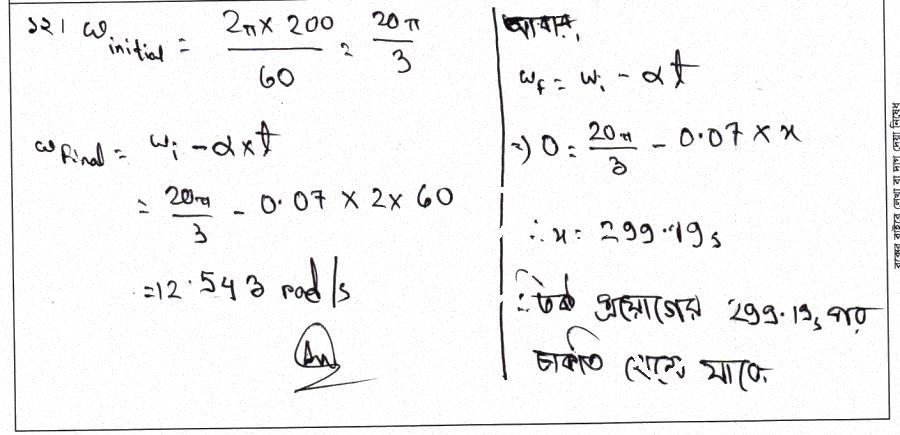 ১২। ω initial = 2π × 200 / 60 = 20π / 3
ω final = ωi - α × t
= 20π / 3 - 0.07 × 2 × 60
= 12.543 rad/s
Ans
আবার,
ωf = ωi - αt
⇒ 0 = 20π / 3 - 0.07 × x
∴ x = 299.19s
∴ টর্ক প্রয়োগের 299.19s পর
চাকাটি থেমে যাবে
বক্সের বাইরে লেখা বা দাগ দেয়া নিষেধ